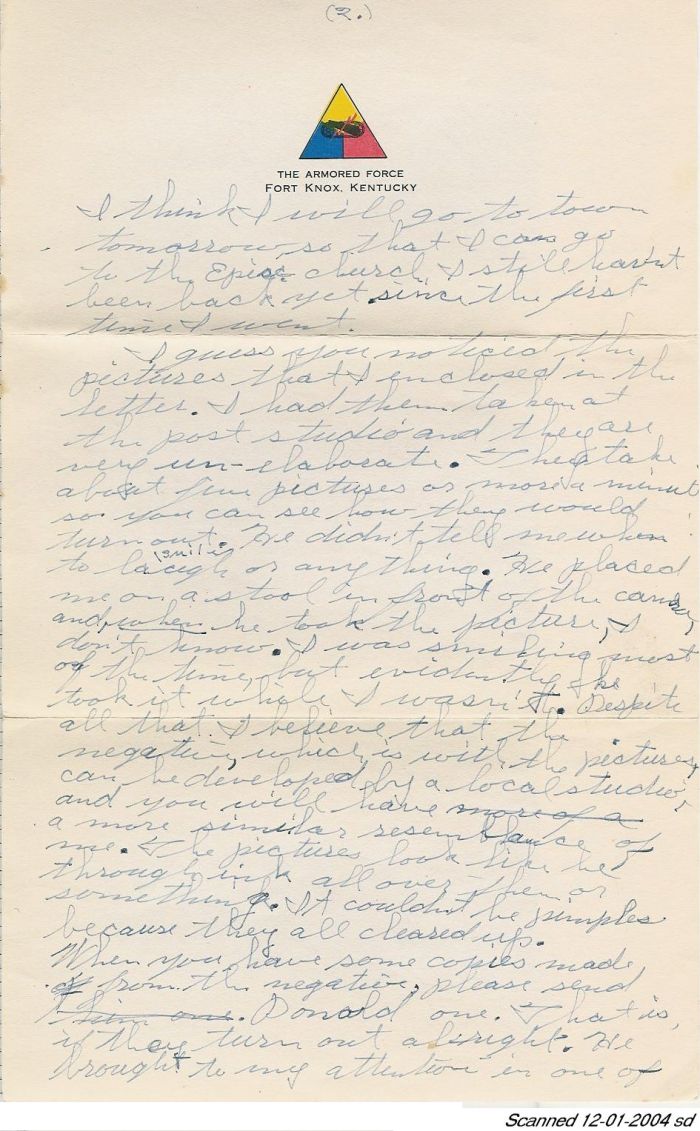 (2.)
THE ARMORED FORCE
FORT KNOX, KENTUCKY
I think I will go to town
tomorrow, so that I can go
to the Episc. church. I still havnt
been back yet since the first
time I went.
I guess you noticed the
pictures that I enclosed in the
letter. I had them taken at
the post studio and they are
very un-elaborate. They take
about five pictures or more a minut
so you can see how they would
turn out. He didn't tell me when
to laugh or anything. He placed
smile
me on a stool in front of the camera,
and when he took the picture, I
don't know. I was smiling most
of the time, but evidently he
took it while I wasn't. Despite
all that I believe that the
negative, which is with the pictures,
can be developed by a local studio,
and you will have more of a
a more similar resemblance of
me. The pictures look like he
through ink all over them or
something. It couldn't be pimples
because they all cleared up.
When you have some copies made
from the negative, please send
one. Donald one. That is,
if they turn out alright. He
brought to my attention in one of
Scanned 12-01-2004 sd